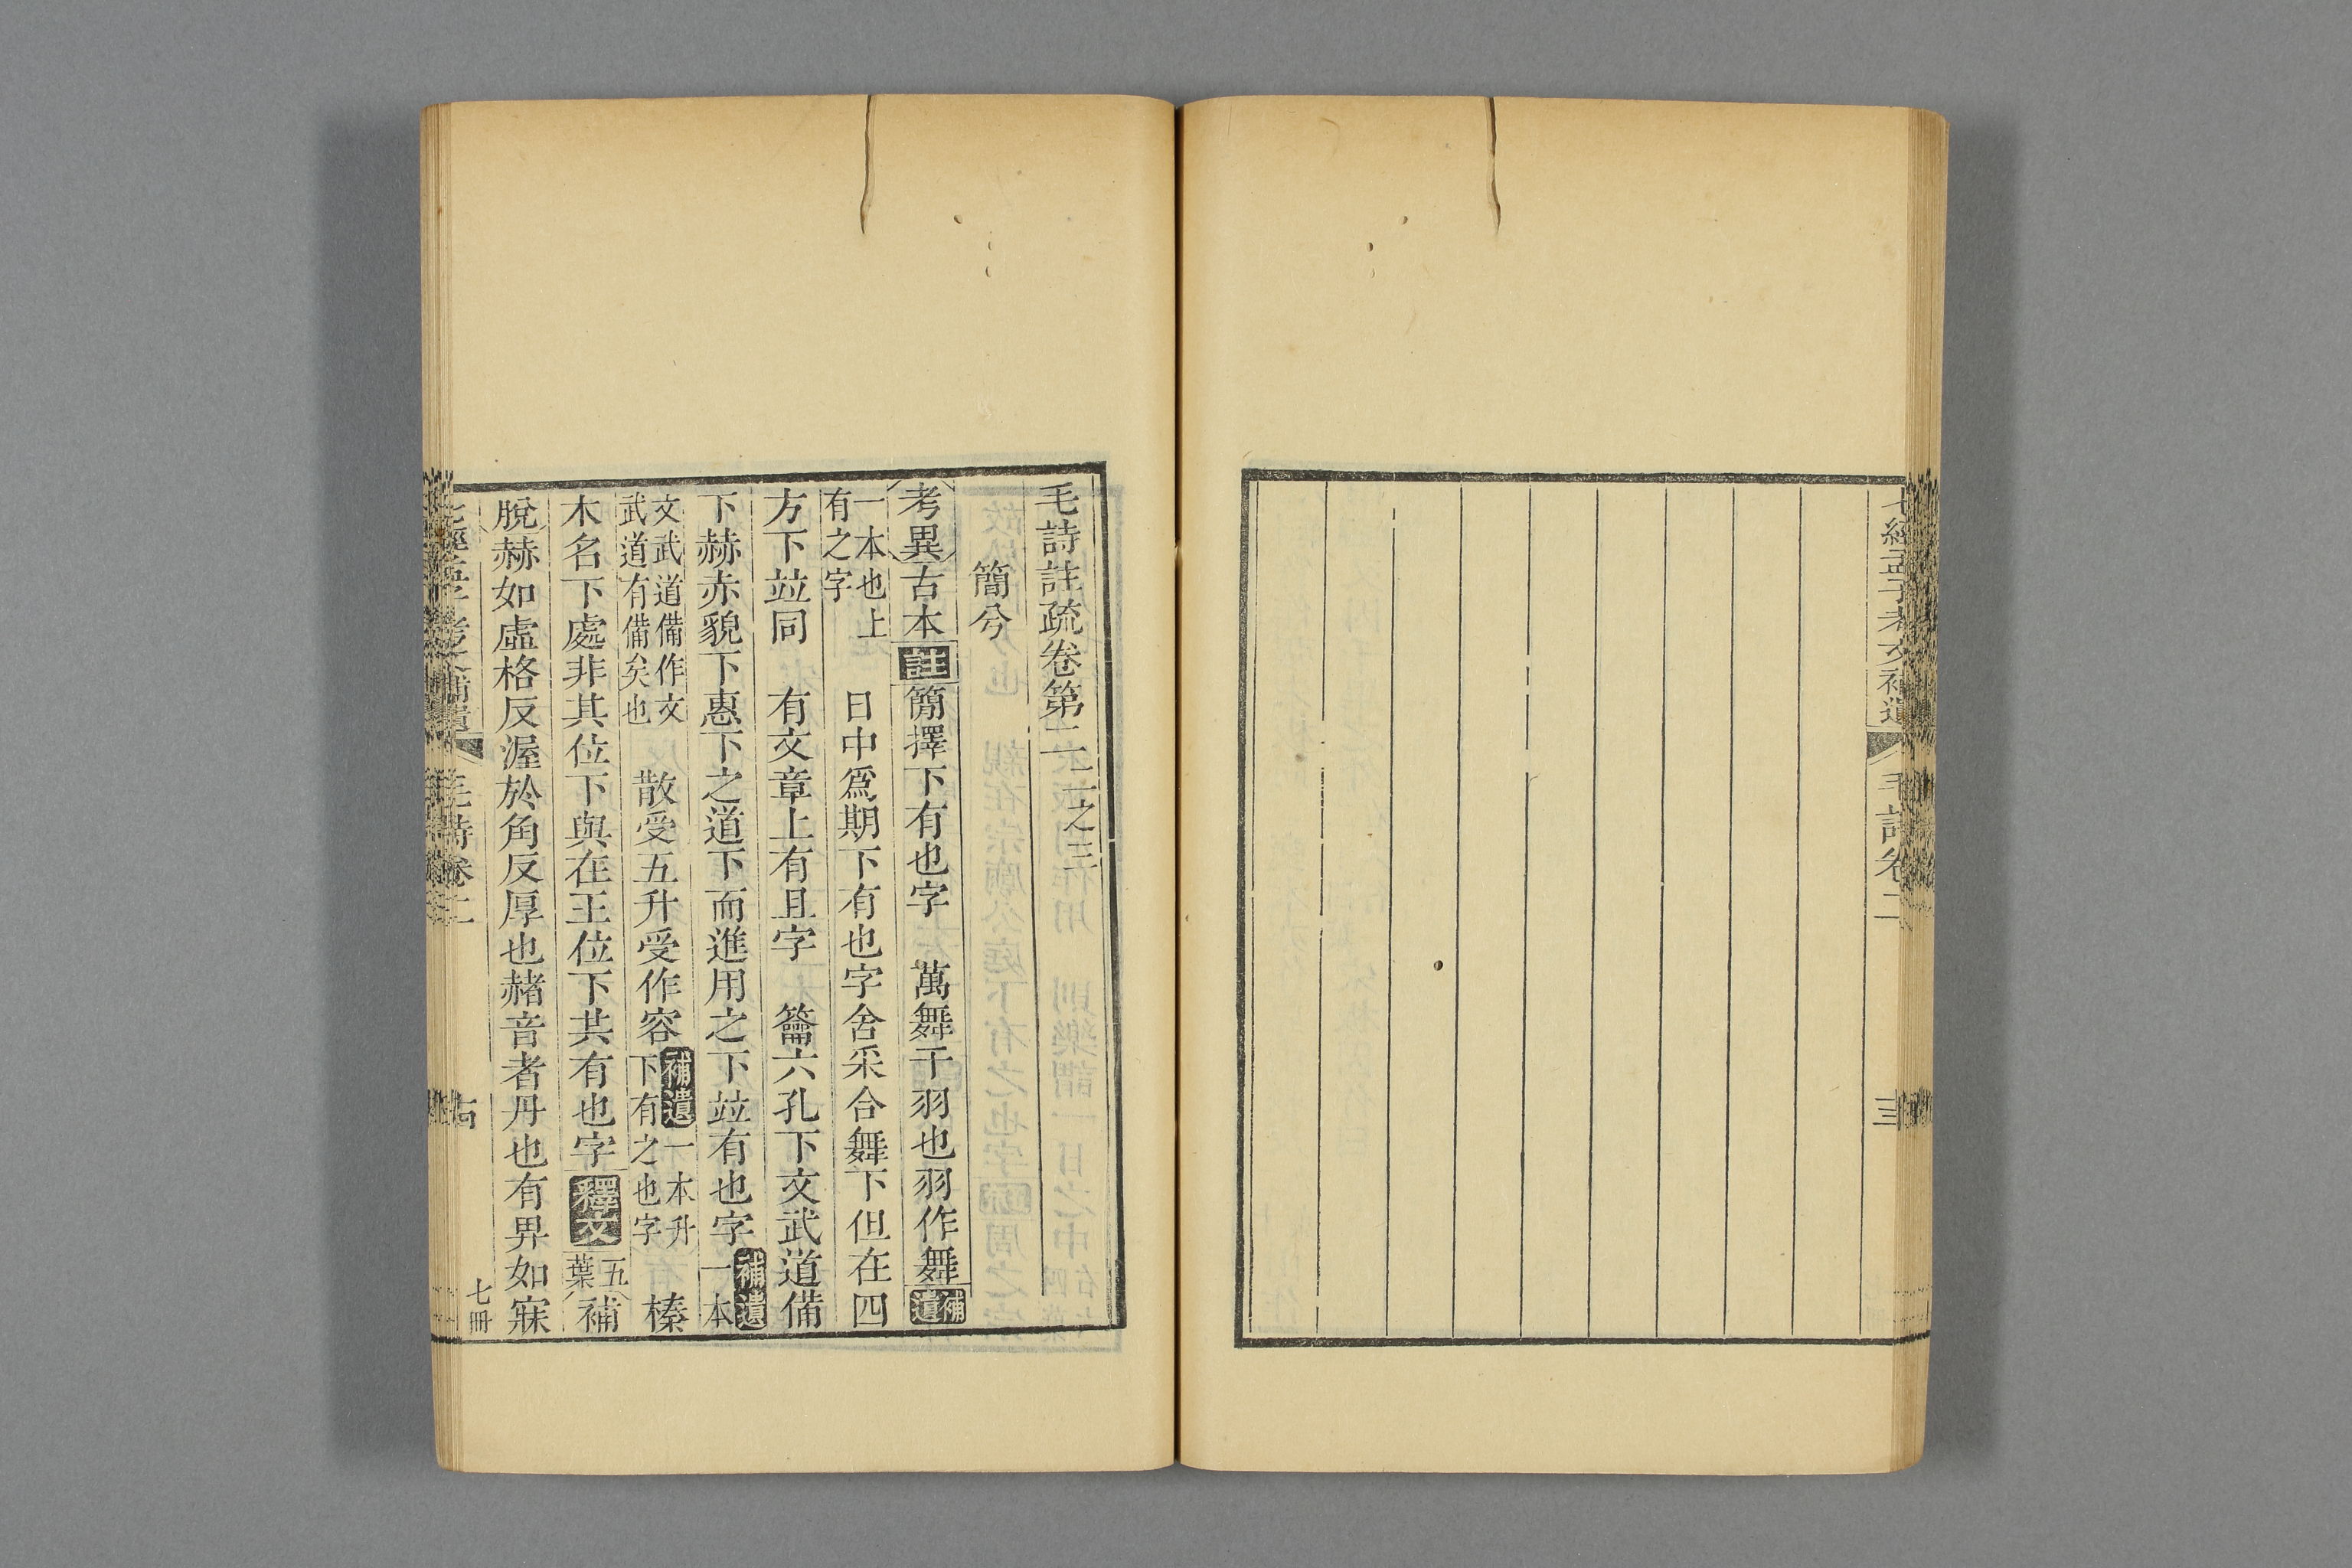 七經孟子考文補遺
毛詩卷二
毛詩註疏卷第二二之三
簡兮
考異古本註簡擇下有也字　萬舞干羽也羽作舞補遺
一本也上有之字　日中爲期下有也字舍采合舞下但在四
方下竝同　有文章上有且字　籥六孔下文武道備
下赫赤貌下惠下之道下而進用之下竝有也字補遺一本
文武道備作文武道有備矣也　散受五升受作容補遺一本升下有之也字　榛
木名下處非其位下與在王位下共有也字釋文五葉補
脫赫如虛格反渥於角反厚也赭音者丹也有畀如寐
七經孟子考文補遺
毛詩卷二
七冊